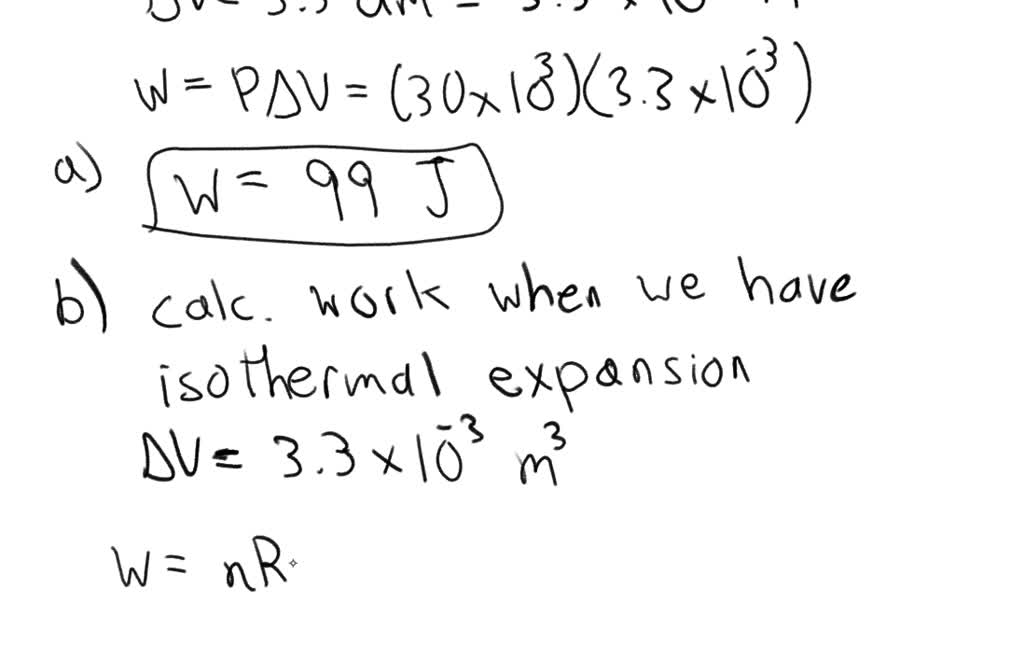 ΔV= 3.3 dm³ = 3.3 × 10
W = PΔV = (30×10³)(3.3 ×10⁻³)
a) W = 99 J
b) calc. work when we have
isothermal expansion
ΔV = 3.3 ×10⁻³ m³
W = nR